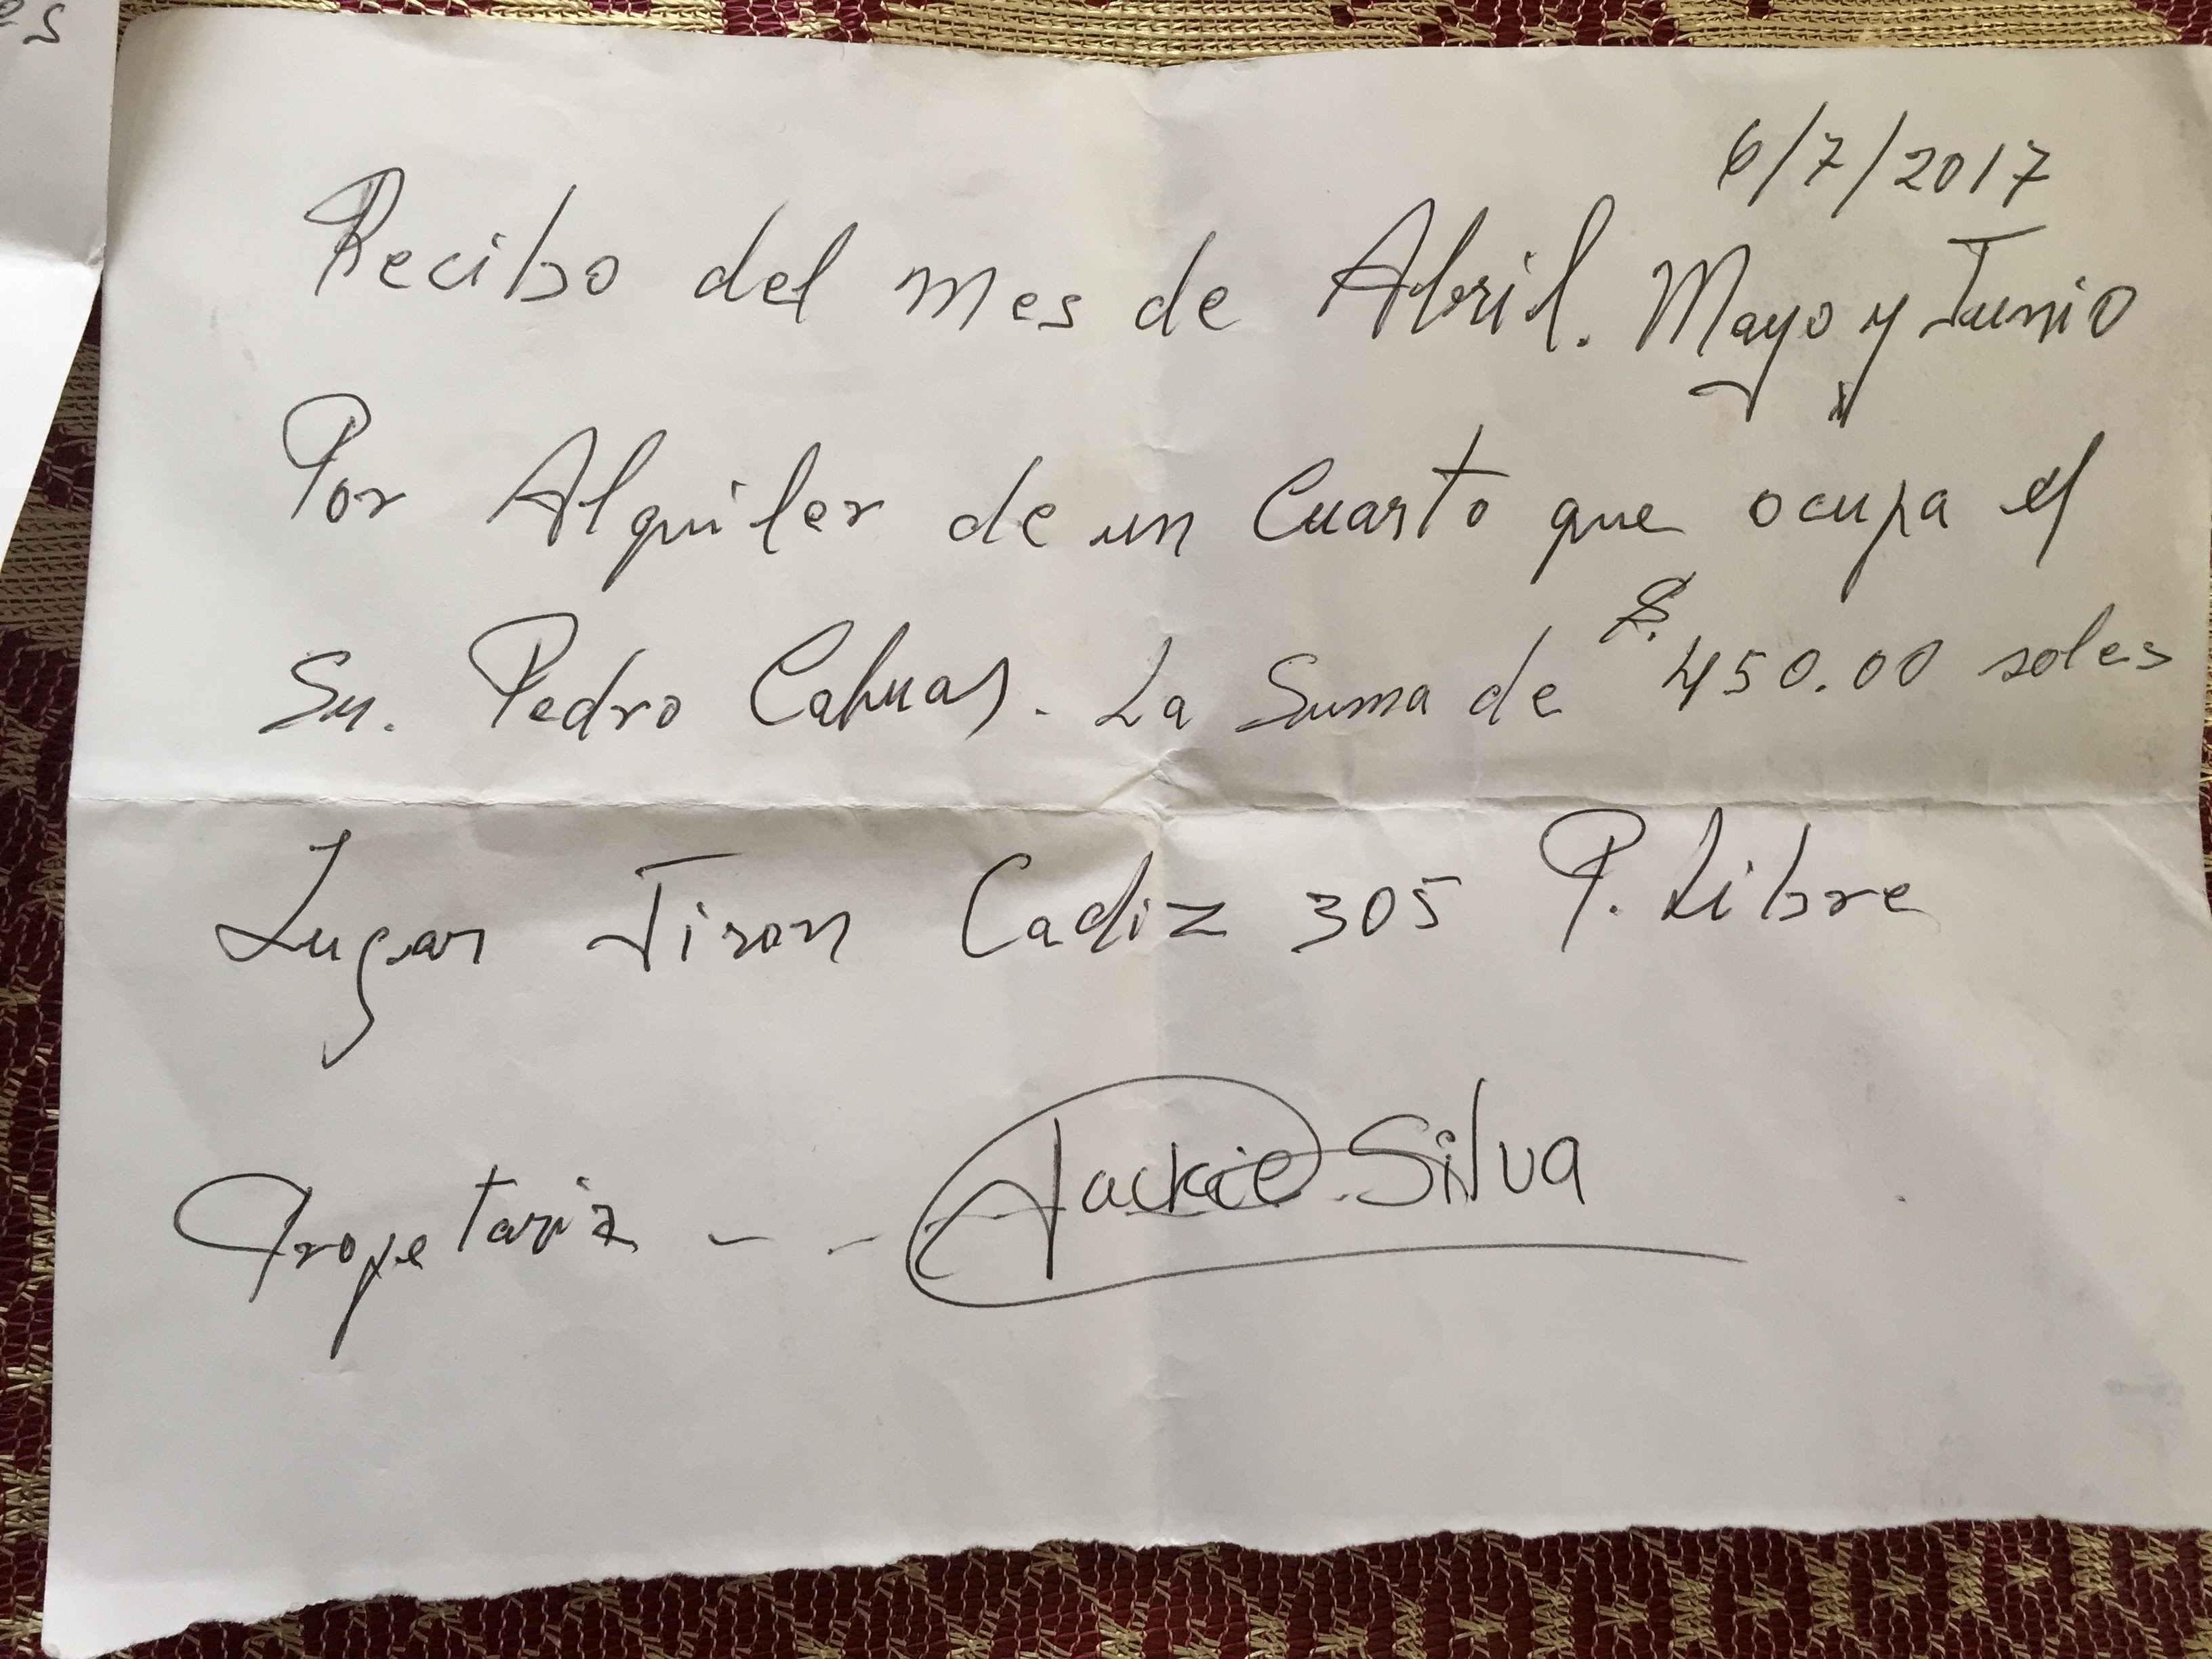 es
6/7/2017
Recibo del mes de Abril. Mayo y Junio
Por Alquiler de un Cuarto que ocupa el
Sr. Pedro Cahuas. La Suma de $. 450.00 soles
Lugar Jiron Cadiz 305 P. Libre
Propetaria - - Jackie Silva